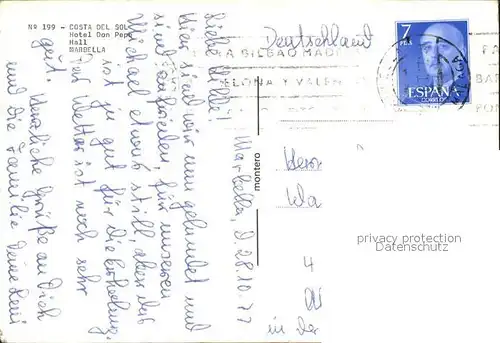 Nº 199 - COSTA DEL SOL
Hotel Don Pepe
Hall
MARBELLA
Deutschland
7
PTA
ESPAÑA
CORREOS
A BILBAO MADRID
ELONA Y VALEN
montero
Marbella, d. 28.10.77
Liebe Hilde!
Hier sind wir nun gelandet und
sind zufrieden, für unseren
Michael etwas still, aber das
ist ja gut für die Erholung.
Das Wetter ist noch sehr
gut. Herzliche Grüße an Dich
und die Familie Deine
Herr
4
in der
privacy protection
Datenschutz